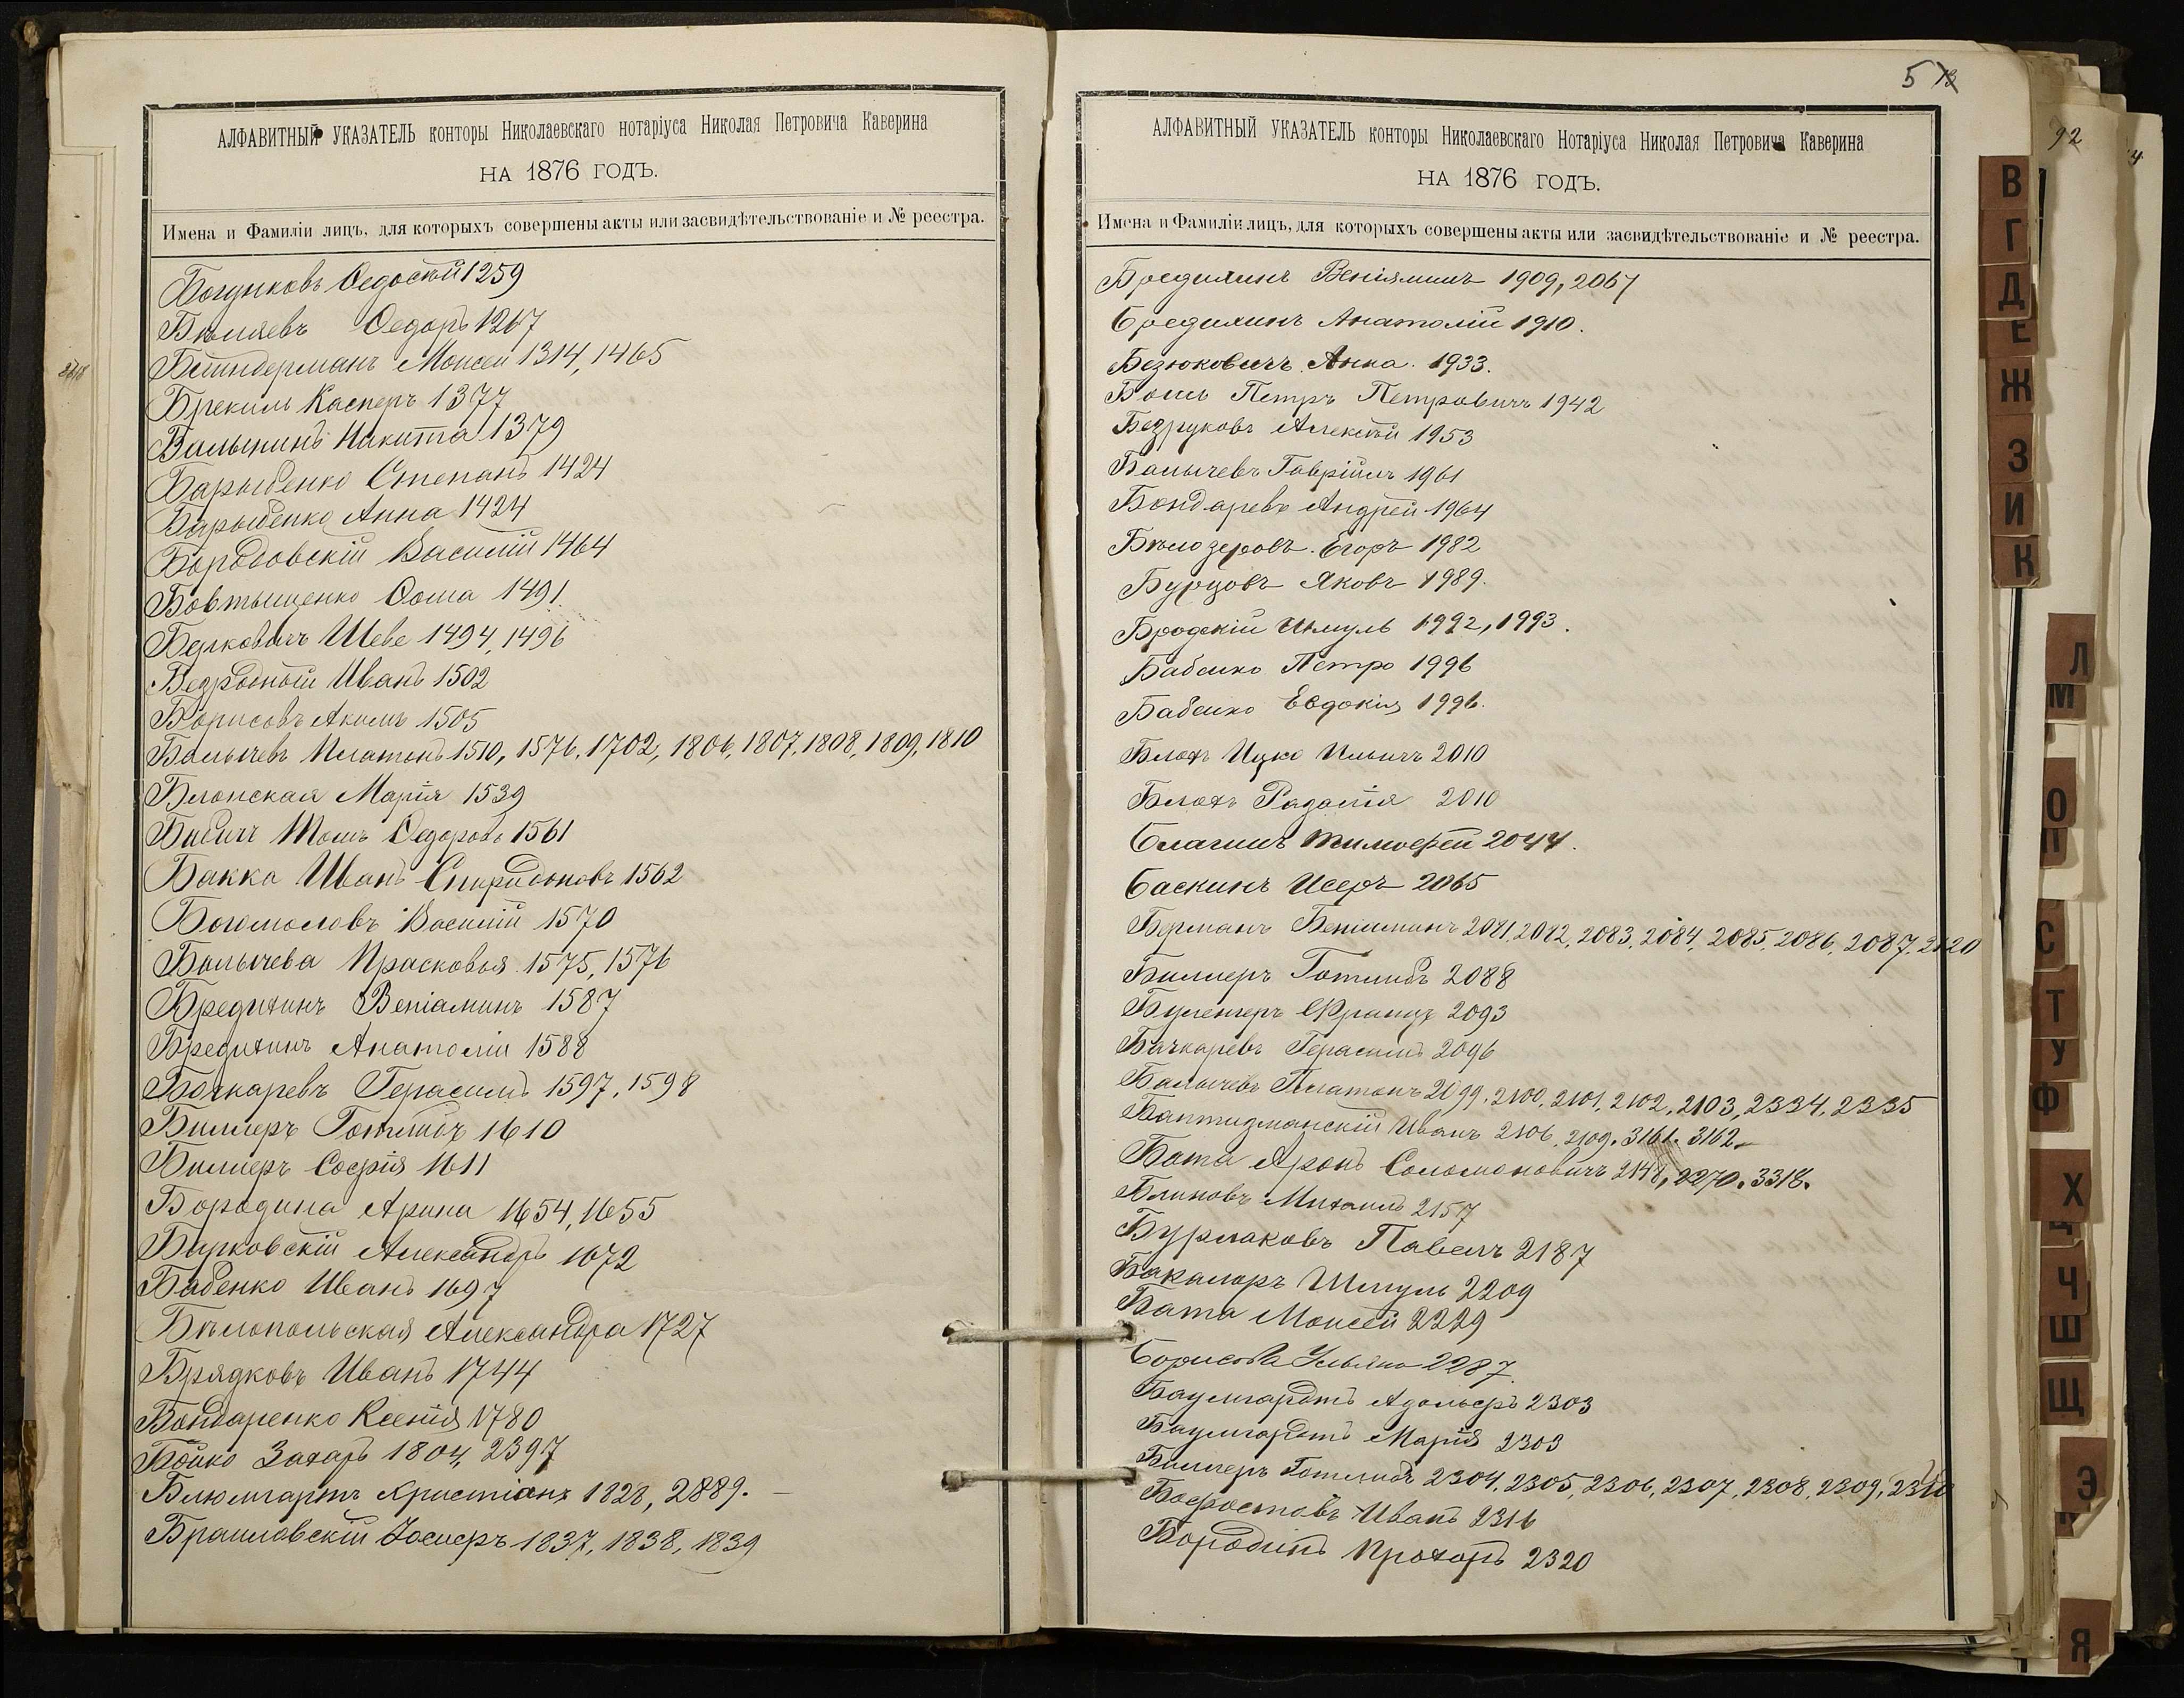 АЛФАВИТНЫЙ УКАЗАТЕЛЬ конторы Николаевскаго нотаріуса Николая Петровича Каверина
НА 1876 ГОДЪ.
Имена и Фамиліи лицъ, для которыхъ совершены акты или засвидѣтельствованіе и № реестра.
Богунковъ Ѳедосѣй 1259
Бѣляевъ Ѳедоръ 1267
Бѣиндерманъ Моисей 1314, 1465
Брекиль Касперъ 1377
Балыкинъ Никита 1379
Барыбенко Степанъ 1424
Барыбенко Анна 1424
Боровскій Василій 1464
Бовтыщенко Ѳома 1491.
Берковичъ Шеве 1494, 1496
Безродный Иванъ 1502
Борисовъ Акимъ 1505
Балычевъ Платонъ 1510, 1576, 1702, 1806, 1807, 1808, 1809, 1810
Блонская Марія 1539
Бабичъ Томъ Ѳедоровъ 1561
Бакка Иванъ Спиридоновъ 1562
Богомоловъ Василій 1570
Балычева Прасковья 1575, 1576
Бредихинъ Веніаминъ 1587
Бредихинъ Анатолій 1588
Бочкаревъ Герасимъ 1597, 1598
Биллеръ Готлибъ 1610
Биллеръ Софія 1611
Бородина Арина 1654, 1655
Барковскій Александръ 1672
Бабенко Иванъ 1697
Бѣлопольская Александра 1727
Брядковъ Иванъ 1744
Бондаренко Ксенія 1780
Бойко Захаръ 1804, 2397
Блюмгартъ Христіанъ 1828, 2889.
Браиловскій Іосифъ 1837, 1838, 1839
5 12
АЛФАВИТНЫЙ УКАЗАТЕЛЬ конторы Николаевскаго Нотаріуса Николая Петровича Каверина
НА 1876 ГОДЪ.
Имена и Фамиліи лицъ, для которыхъ совершены акты или засвидѣтельствованіе и № реестра.
Бредихинъ Веніяминъ 1909, 2067
Бредихинъ Анатолій 1910.
Безюковичъ Анна. 1933.
Бошъ Петръ Петровичъ 1942
Безруковъ Алексѣй 1953
Балычевъ Гавріилъ 1961
Бондаревъ Андрей 1964
Бѣлозеровъ Егоръ 1982
Бурцовъ Яковъ 1989.
Бродскій Шмуль 1992, 1993.
Бабенко Петро 1996
Бабенко Евдокія 1996.
Блохъ Ицко Ильичъ 2010
Блохъ 2010
Благинъ Тимофей 2044.
Баскинъ Исеръ 2065
Берманъ Веніаминъ 2081, 2082, 2083, 2084, 2085, 2086, 2087, 2120
Биллеръ Готлибъ 2088
Францъ 2093
Бачкаревъ Герасимъ 2096
Балычевъ Платонъ 2099, 2100, 2101, 2102, 2103, 2334, 2335
Баптизманскій Иванъ 2106, 2109. 3161. 3162.
Бата Аронъ Соломоновичъ 2148, 2270. 3318.
Блиновъ Михаилъ 2157
Бурлаковъ Павелъ 2187
Бакаляръ Шмуль 2209
Бата Моисей 2229
Борисова Ульяна 2287.
Баумгардтъ Адольфъ 2303
Баумгардтъ Марія 2303
Биллеръ Готлибъ 2304, 2305, 2306, 2307, 2308, 2309, 2310
Иванъ 2316
Бородинъ Прохоръ 2320
92
4
В
Г
Д
Е
Ж
З
И
К
Л
М
О
П
С
Т
У
Ф
Х
Ц
Ч
Ш
Щ
Э
Я